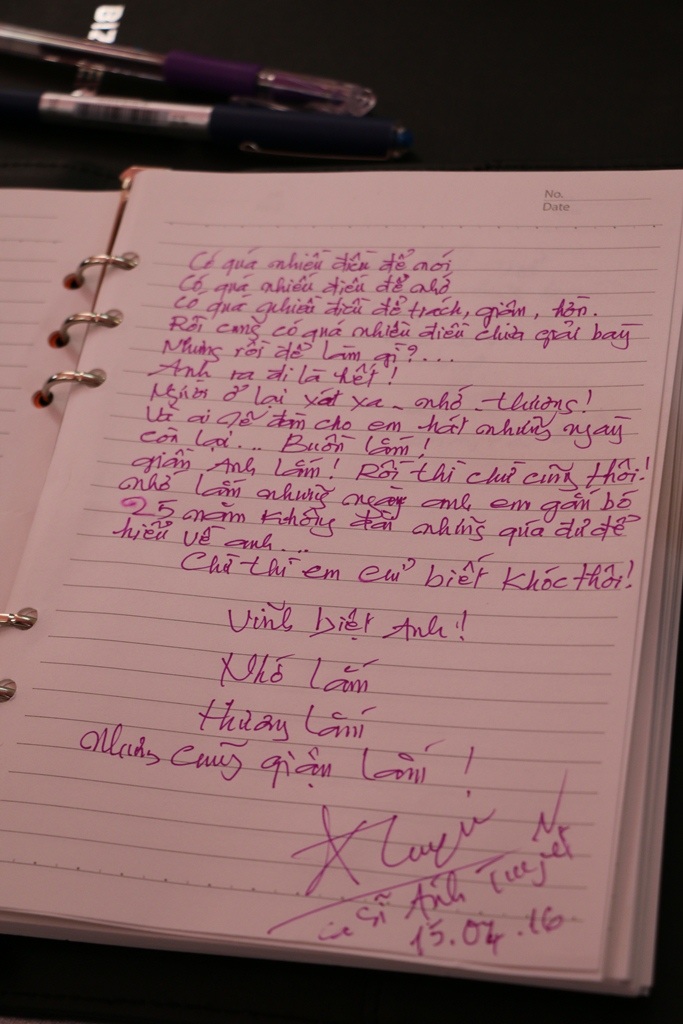 BIZ
No.
Date
Có quá nhiều điều để nói
Có quá nhiều điều để nhớ
Có quá nhiều điều để trách, giận, hờn.
Rồi cũng có quá nhiều điều chưa giải bày
Nhưng rồi để làm gì?...
Anh ra đi là hết!
Người ở lại xót xa - nhớ - thương!
Và ai sẽ đàn cho em hát những ngày
còn lại... Buồn lắm!
giận Anh lắm! Rồi thì chứ cũng thôi!
nhớ lắm những ngày anh em gắn bó
25 năm không dài nhưng quá đủ để
hiểu về anh...
Chừ thì em chỉ biết khóc thôi!
Vĩnh biệt Anh!
Nhớ lắm
thương lắm
Nhưng cũng giận lắm!
ca sĩ Ánh Tuyết
15.04.16